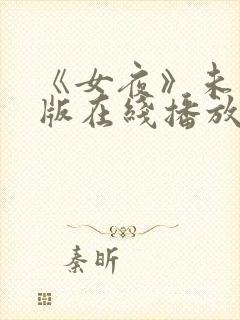 《女夜》未
版在綫播放
秦昕